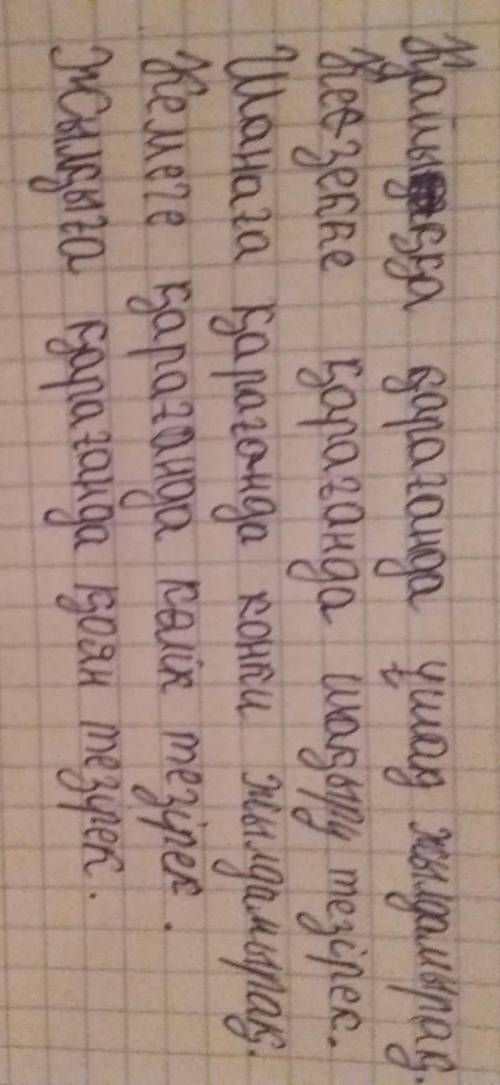 Қайыққа қарағанда ұшақ жылдамырақ.
Кезекке қарағанда шақыру тезірек.
Шанаға қарағанда конки жылдамырақ.
Кемеге қарағанда көлік тезірек.
Жылқыға қарағанда қоян тезірек.